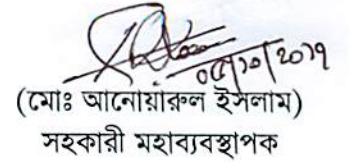 ০৫/১০/২০১৭
(মোঃ আনোয়ারুল ইসলাম)
সহকারী মহাব্যবস্থাপক